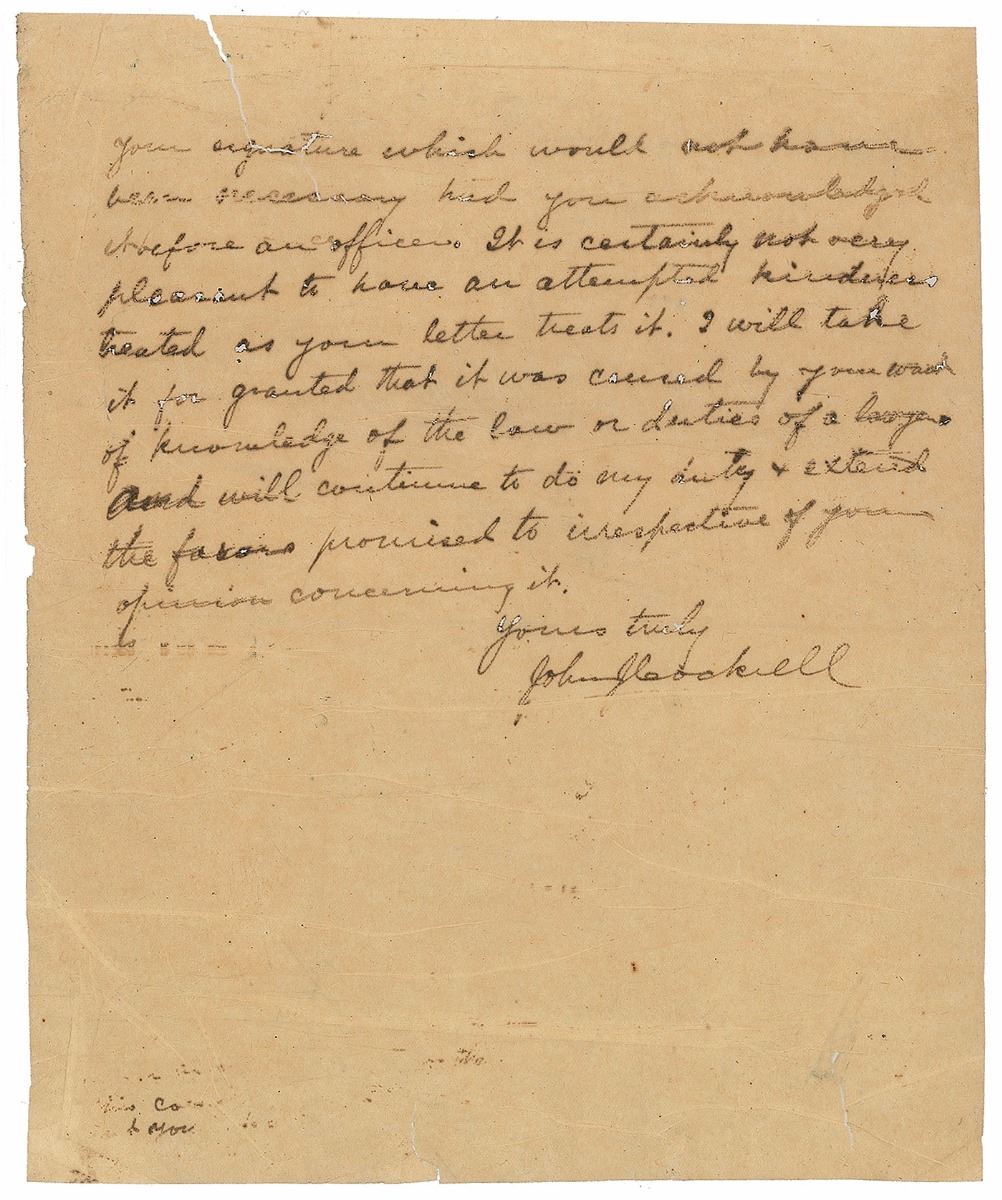 your signature which would not have
been necessary had you acknowledged
it before an officer. It is certainly not very
pleasant to have an attempted kindness
treated as your letter treats it. I will take
it for granted that it was caused by your want
of knowledge of the law or duties of a
and will continue to do my duty & extend
the favors promised to irrespective of your
opinion concerning it.
Yours truly
John J Cockrell
Co
& you